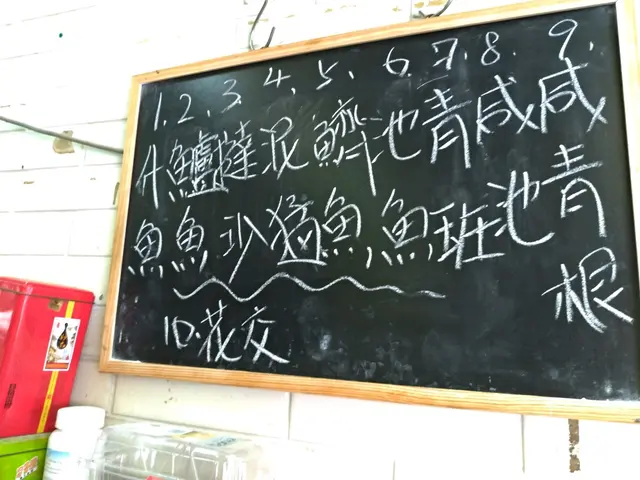 1. 什魚
2. 鱸魚
3. 撻沙
4. 泥猛
5. 鱭魚
6. 池魚
7. 青班
8. 咸池
9. 咸青根
10. 花交